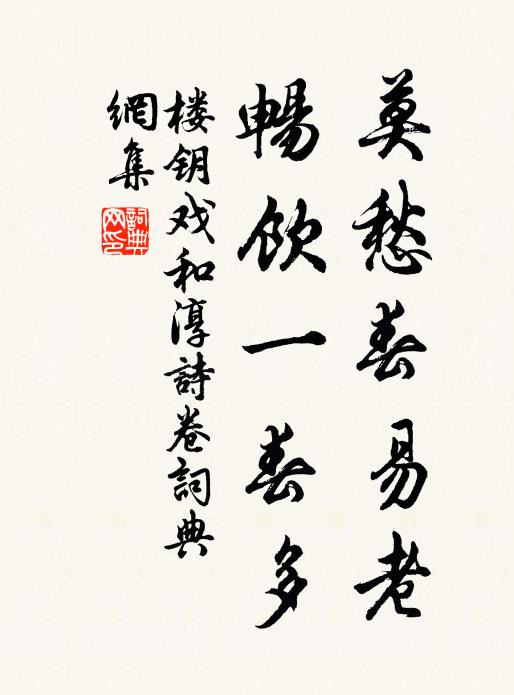 莫愁春易老
暢飲一春多
楼钥戏和淳詩卷詞典
網集
詞典网印